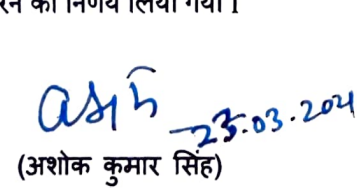 रने का निर्णय लिया गया।
23.03.2021
(अशोक कुमार सिंह)